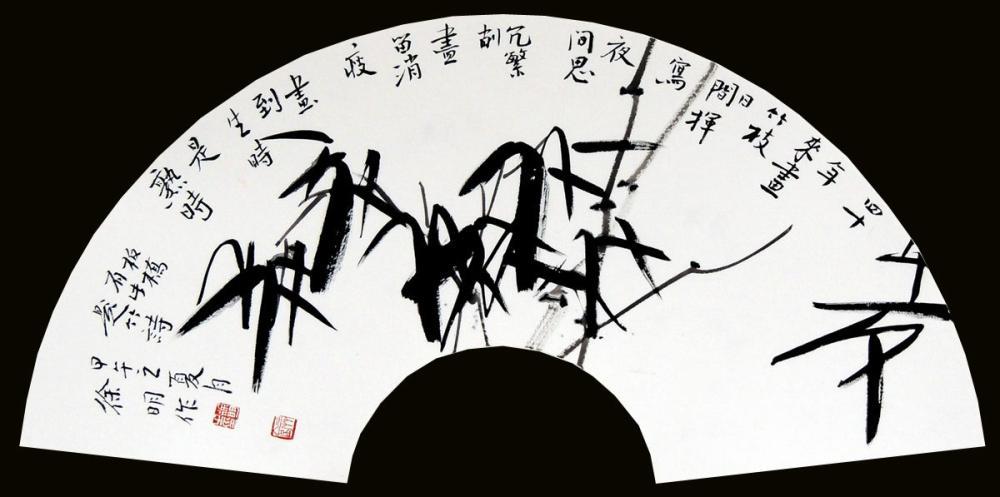 四十
年來
畫竹枝
日間
揮
寫
夜
間思
冗繁
削
盡
留清
瘦
畫
到
生時
是
熟時
板橋
有竹詩
甲午之夏月
徐明作